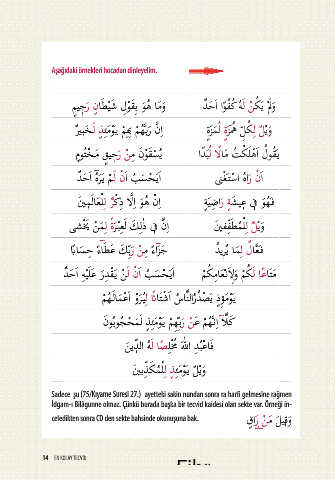 Aşağıdaki örnekleri hocadan dinleyelim.
وَلَمْ يَكُنْ لَهُ كُفُوًا اَحَدٌ
وَمَا هُوَ بِقَوْلِ شَيْطَانٍ رَجِيمٍ
وَيْلٌ لِكُلِّ هُمَزَةٍ لُمَزَةٍ
اِنَّ رَبَّهُمْ بِهِمْ يَوْمَئِذٍ لَخَبِيرٌ
يَقُولُ اَهْلَكْتُ مَالًا لُبَدًا
يُسْقَوْنَ مِنْ رَحِيقٍ مَخْتُومٍ
اَنْ رَاٰهُ اسْتَغْنٰى
اَيَحْسَبُ اَنْ لَمْ يَرَهُٓ اَحَدٌ
فَهُوَ فِى عِيشَةٍ رَاضِيَةٍ
اِنْ هُوَ اِلَّا ذِكْرٌ لِلْعَالَمِينَ
وَيْلٌ لِلْمُطَفِّفِينَ
اِنَّ فِى ذٰلِكَ لَعِبْرَةً لِمَنْ يَخْشٰى
فَعَّالٌ لِمَا يُرِيدُ
جَزَٓاءً مِنْ رَبِّكَ عَطَٓاءً حِسَابًا
مَتَاعًا لَكُمْ وَلِاَنْعَامِكُمْ
اَيَحْسَبُ اَنْ لَنْ يَقْدِرَ عَلَيْهِ اَحَدٌ
يَوْمَئِذٍ يَصْدُرُ النَّاسُ اَشْتَاتًا لِيُرَوْا اَعْمَالَهُمْ
كَلَّٓا اِنَّهُمْ عَنْ رَبِّهِمْ يَوْمَئِذٍ لَمَحْجُوبُونَ
فَاعْبُدِ اللّٰهَ مُخْلِصًا لَهُ الدِّينَ
وَيْلٌ يَوْمَئِذٍ لِلْمُكَذِّبِينَ
Sadece şu (75/Kıyame Suresi 27.) ayetteki sakin nundan sonra ra harfi gelmesine rağmen
İdgam-ı Bilâgunne olmaz. Çünkü burada başka bir tecvid kaidesi olan sekte var. Örneği in-
celedikten sonra CD den sekte bahsinde okunuşuna bak.
وَقِيلَ مَنْ رَاقٍ
14 EN KOLAY TECVİD